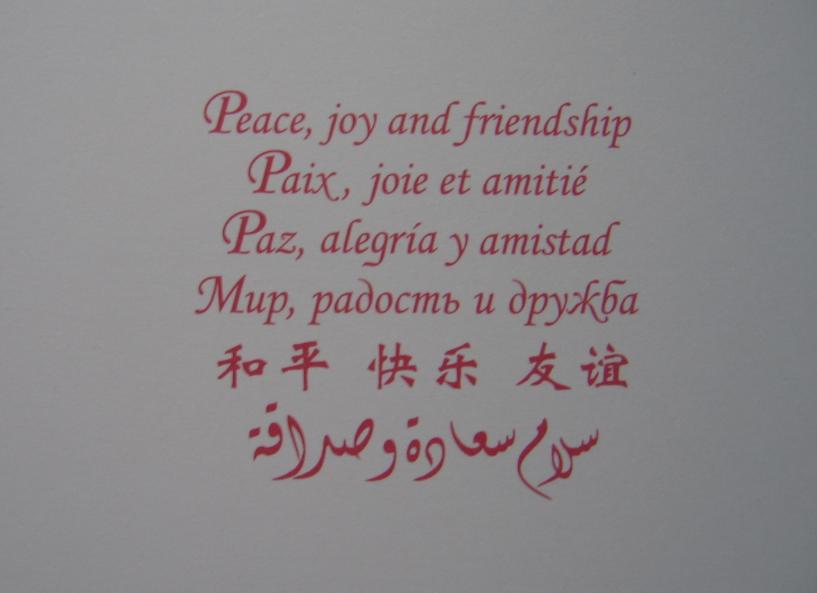 Peace, joy and friendship
Paix, joie et amitié
Paz, alegría y amistad
Мир, радость и дружба
和平 快乐 友谊
سلام سعادة وصداقة